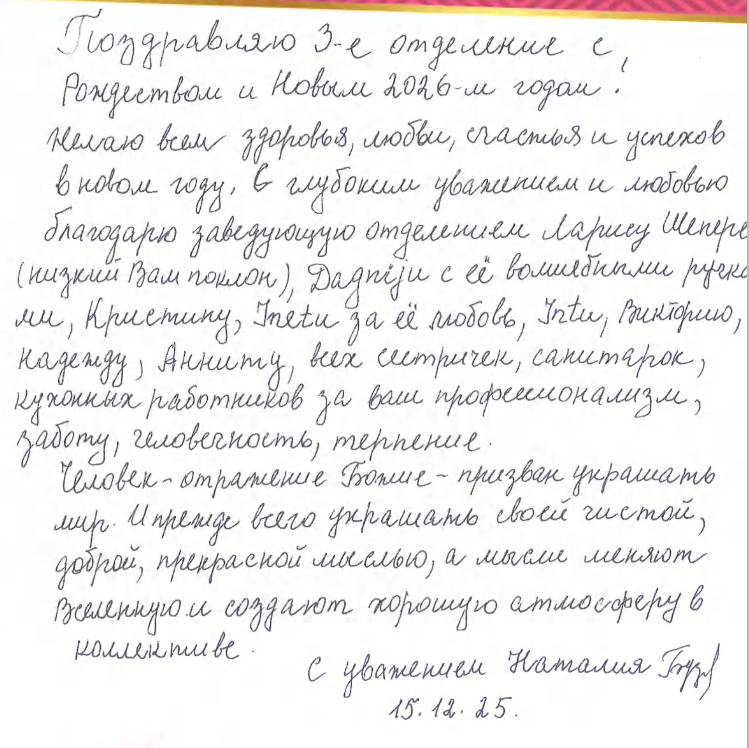 Поздравляю 3-е отделение с
Рождеством и Новым 2026-м годом!
Желаю всем здоровья, любви, счастья и успехов
в новом году. С глубоким уважением и любовью
благодарю заведующую отделением Ларису Шепере
(низкий Вам поклон), Dagniju с её волшебными ручка
ми, Кристину, Inetu за её любовь, Intu, Викторию,
Надежду, Анниту, всех сестричек, санитарок,
кухонных работников за ваш профессионализм,
заботу, человечность, терпение.
Человек - отражение Божие - призван украшать
мир. И прежде всего украшать своей чистой,
доброй, прекрасной мыслью, а мысли меняют
Вселенную и создают хорошую атмосферу в
коллективе.
С уважением Наталия
15.12.25.